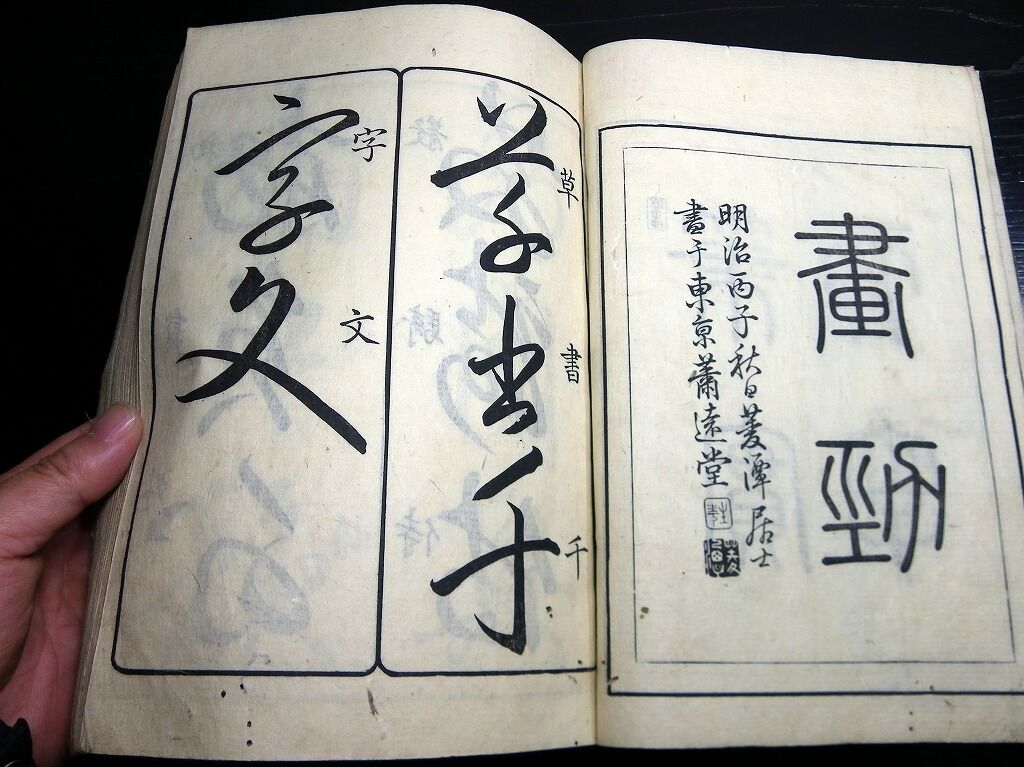 畫勁
明治丙子秋日菱潭居士
書于東京蕭遠堂
草書千
草書千
字文
字文